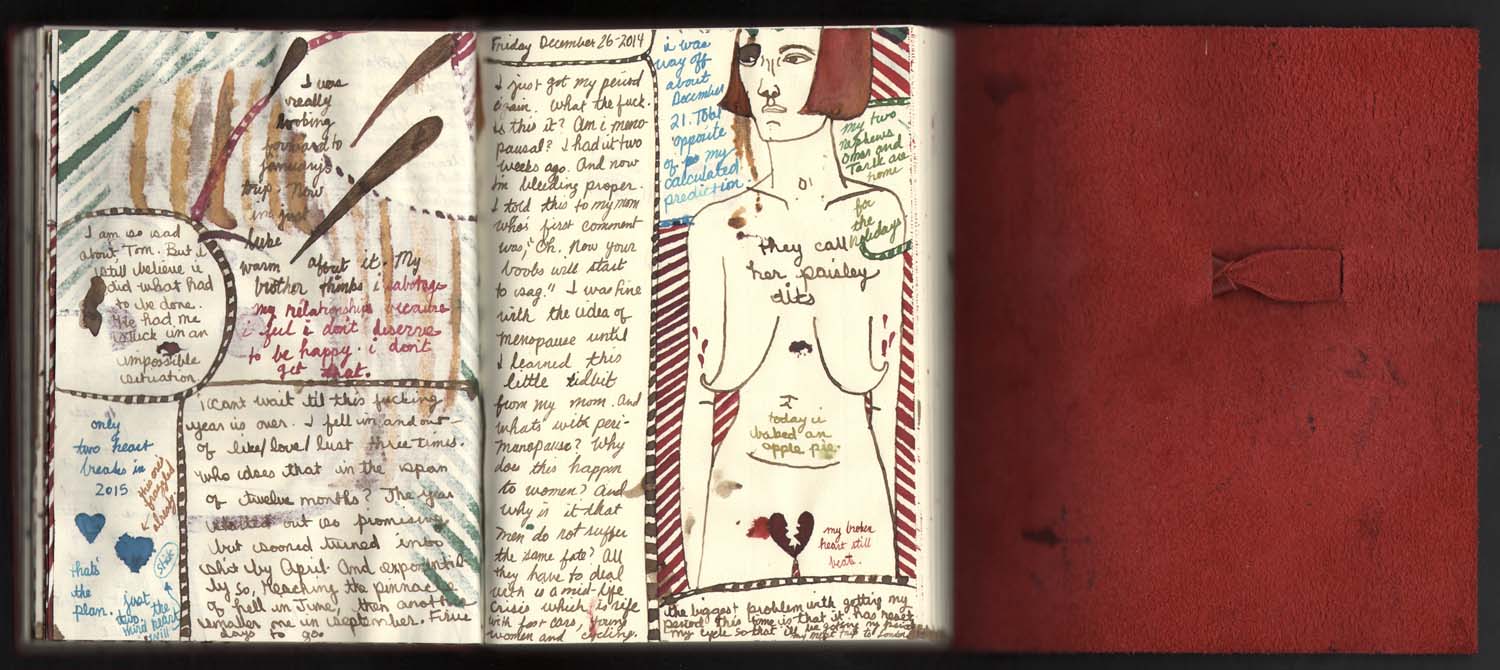 I was
really
looking
forward to
january's
trip. Now
im just
luke
warm about it. My
brother thinks i sabotage
my relationships because
i feel i don't deserve
to be happy. i don't
get that.
I am so sad
about Tom. But i
still believe i
did what had
to be done.
He had me
stuck in an
impossible
situation
only
two heart
breaks in
2015
this one
already.
that's
the
plan.
just
two.
the
third heart
will
stay
i cant wait til this fucking
year is over. I fell in and out
of like/love/lust three times.
who does that in the span
of twelve months? The year
started out so promising
but sooned turned into
shit by April. And exponential
ly so, reaching the pinnacle
of hell in June, then another
smaller one in september. Five
days to go.
Friday December 26-2014
I just got my period
again. What the fuck.
is this it? Am i meno
pausal? I had it two
weeks ago. And now
im bleeding proper.
I told this to my mom
who's first comment
was, "Oh. Now your
boobs will start
to sag." I was fine
with the idea of
menopause until
I learned this
little tidbit
from my mom. And
whats with peri-
menopause? Why
does this happen
to women? And
why is it that
men do not suffer
the same fate? All
they have to deal
with is a mid-life
crisis which is rife
with fast cars, young
women and cycling.
i was
way off
about
December
21. Total
opposite
of my
calculated
prediction.
my two
nephews
Omar and
Tarek are
home
for
the
holidays
they call
her paisley
tits
today i
baked an
apple pie.
my broken
heart still
beats.
the biggest problem with getting my
period this time is that it has reset
my cycle so that ill be getting my period
my next trip to London